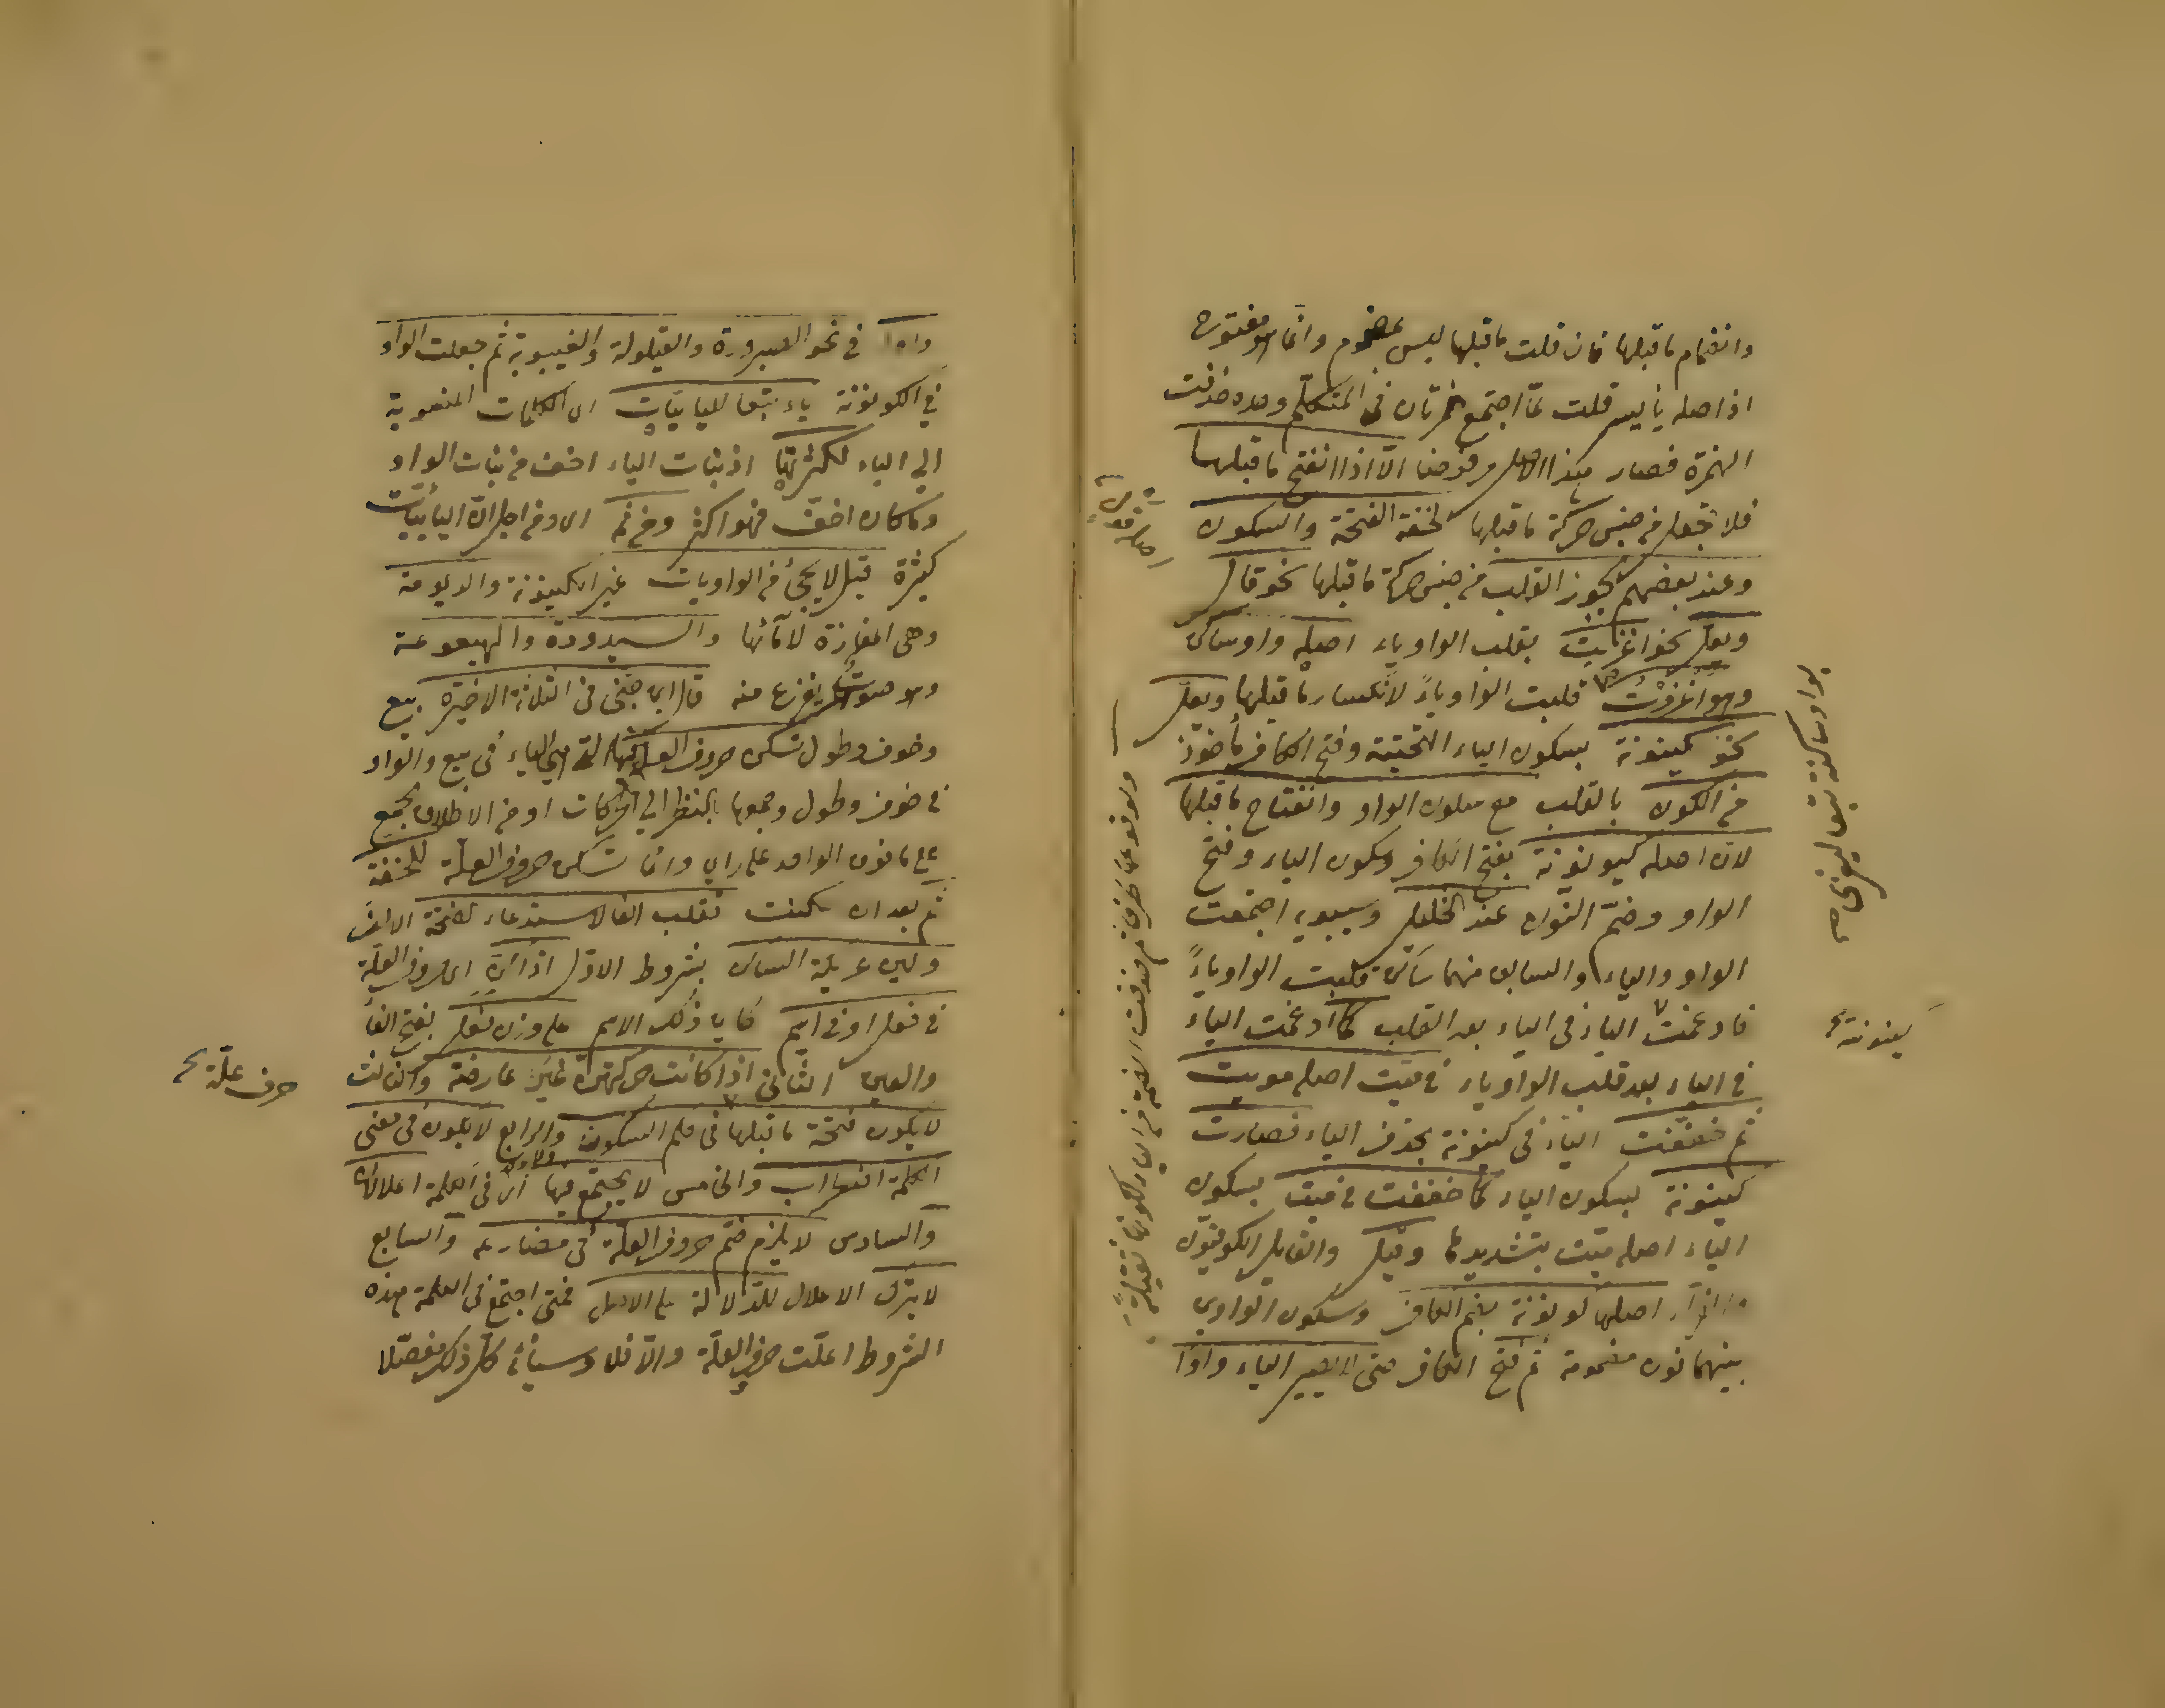 وانضمام ما قبلها فان قلت ما قبلها ليس بمضموم وانما هو مفتوح
اذ اصله يأيسر قلت لما اجتمع همزتان في المتكلم وحده حذفت
الهمزة فصار هكذا الاصل وفرضنا الا اذا انفتح ما قبلها
فلا تجعل من جنس حركة ما قبلها لخفة الفتحة والسكون
وعند بعضهم يجوز القلب من جنس حركة ما قبلها نحو قال
ويعل نحو اغزيت بقلب الواو ياء اصله واو ساكن
وهو اغزوت قلبت الواو ياءً لانكسار ما قبلها ويعل
نحو كينونة بسكون الياء التحتية وفتح الكاف مأخوذ
من الكون بالقلب مع سكون الواو وانفتاح ما قبلها
لان اصله كيونونة بفتح الكاف وسكون الياء وفتح
الواو وضم النون عند الخليل وسيبويه اجتمعت
الواو والياء والسابق منهما ساكن قلبت الواو ياءً
فادغمت الياء في الياء بعد القلب كما ادغمت الياء
في الياء بعد قلب الواو ياء في ميّت اصله ميوت
ثم خففت الياء في كينونة بحذف الياء فصارت
كينونة بسكون الياء كما خففت في ميت بسكون
الياء اصله ميّت بتشديدها وقيل والقائل الكوفيون
اصلها كونونة بضم الكاف وسكون الواو
بينهما نون مضمومة ثم فتح الكاف حتى لا يصير الياء واوا
كينونة
واوا في نحو الصيرورة والقيلولة والغيبوبة ثم جعلت الواو
في الكونونة ياء تبعا لليائيات اى الكلمات المنسوبة
الى الياء لكثرتها اذ بنات الياء اخف من بنات الواو
وما كان اخف فهو اكثر ومن ثم اى ومن اجل ان اليائيات
كثيرة قيل لا يجئ من الواويات غير الكينونة والديمومة
وهى المفازة لا ماء بها والسيدودة والهيعوعة
وهو صوت يفزع منه قال ابن جنى فى الثلاثة الاخيرة بيع
وخوف وطول تسكن حروف العلة فيها وهي الياء في بيع والواو
في خوف وطول وجمعها بالنظر الى الحركات او من الاطلاق الجمع
على ما فوق الواحد على راي وانما تسكن حروف العلة للخفة
ثم بعد ان سكنت تقلب الفا لاستدعاء الفتحة الالف
ولين عريكة الساكن بشروط الاول اذا كن اى حروف العلة
في فعل او في اسم كاين ذلك الاسم على وزن فعل بفتح الفا
والعين الثاني اذا كانت حركتهن غير عارضة والثالث
لا يكون فتحة ما قبلها في حكم السكون والرابع لا يكون في معنى
الكلمة اضطراب والخامس لا يجتمع فيها اى في الكلمة اعلالان
والسادس لا يلزم ضم حروف العلة في مضارعه والسابع
لا يترك الاعلال للدلالة على الاصل فمتى اجتمع في الكلمة هذه
الشروط اعلت حرف العلة والا فلا وسيأتي كل ذلك مفصلا
حرف علة